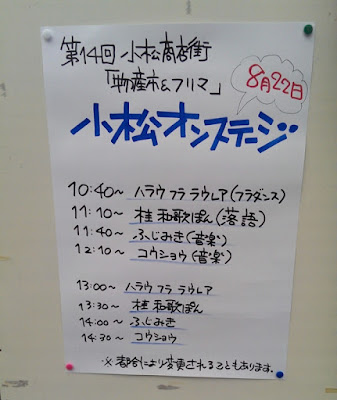 第14回 小松商店街
「物産市&フリマ」
8月22日
小松オンステージ
10:40~ ハラウ フラ ラウレア(フラダンス)
11:10~ 桂 和歌ぽん(落語)
11:40~ ふじみき(音楽)
12:10~ コウショウ(音楽)
13:00~ ハラウ フラ ラウレア
13:30~ 桂 和歌ぽん
14:00~ ふじみき
14:30~ コウショウ
※都合により変更されることもあります。